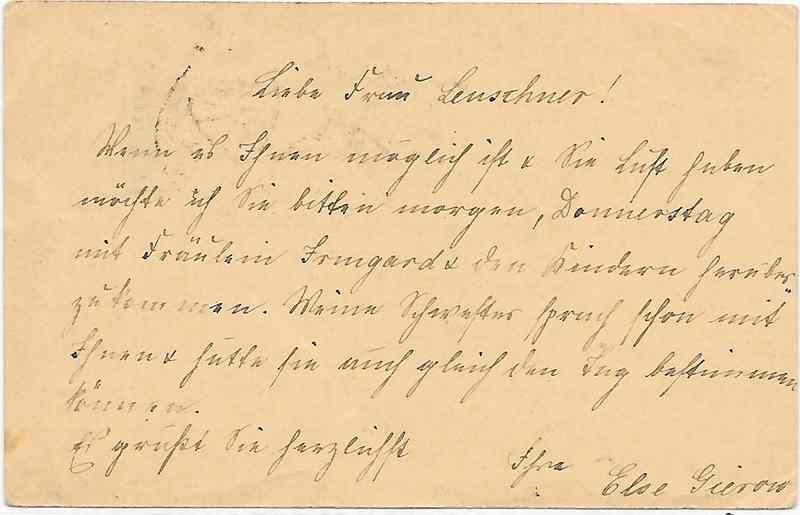 Liebe Frau Leuschner!
Wenn es Ihnen möglich ist & Sie Lust haben
möchte ich Sie bitten morgen, Donnerstag
mit Fräulein Irmgard & den Kindern herüber
zukommen. Meine Schwester sprach schon mit
Ihnen & hatte sie auch gleich den Tag bestimmen
können.
Es grüßt Sie herzlichst
Ihre
Else Gierow